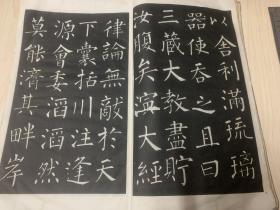 以舍利滿琉璃
器使吞之且曰
三藏大教盡貯
汝腹矣大經
律論無敵於天
下囊括川注逢
源會委滔滔然
莫能濟其畔岸